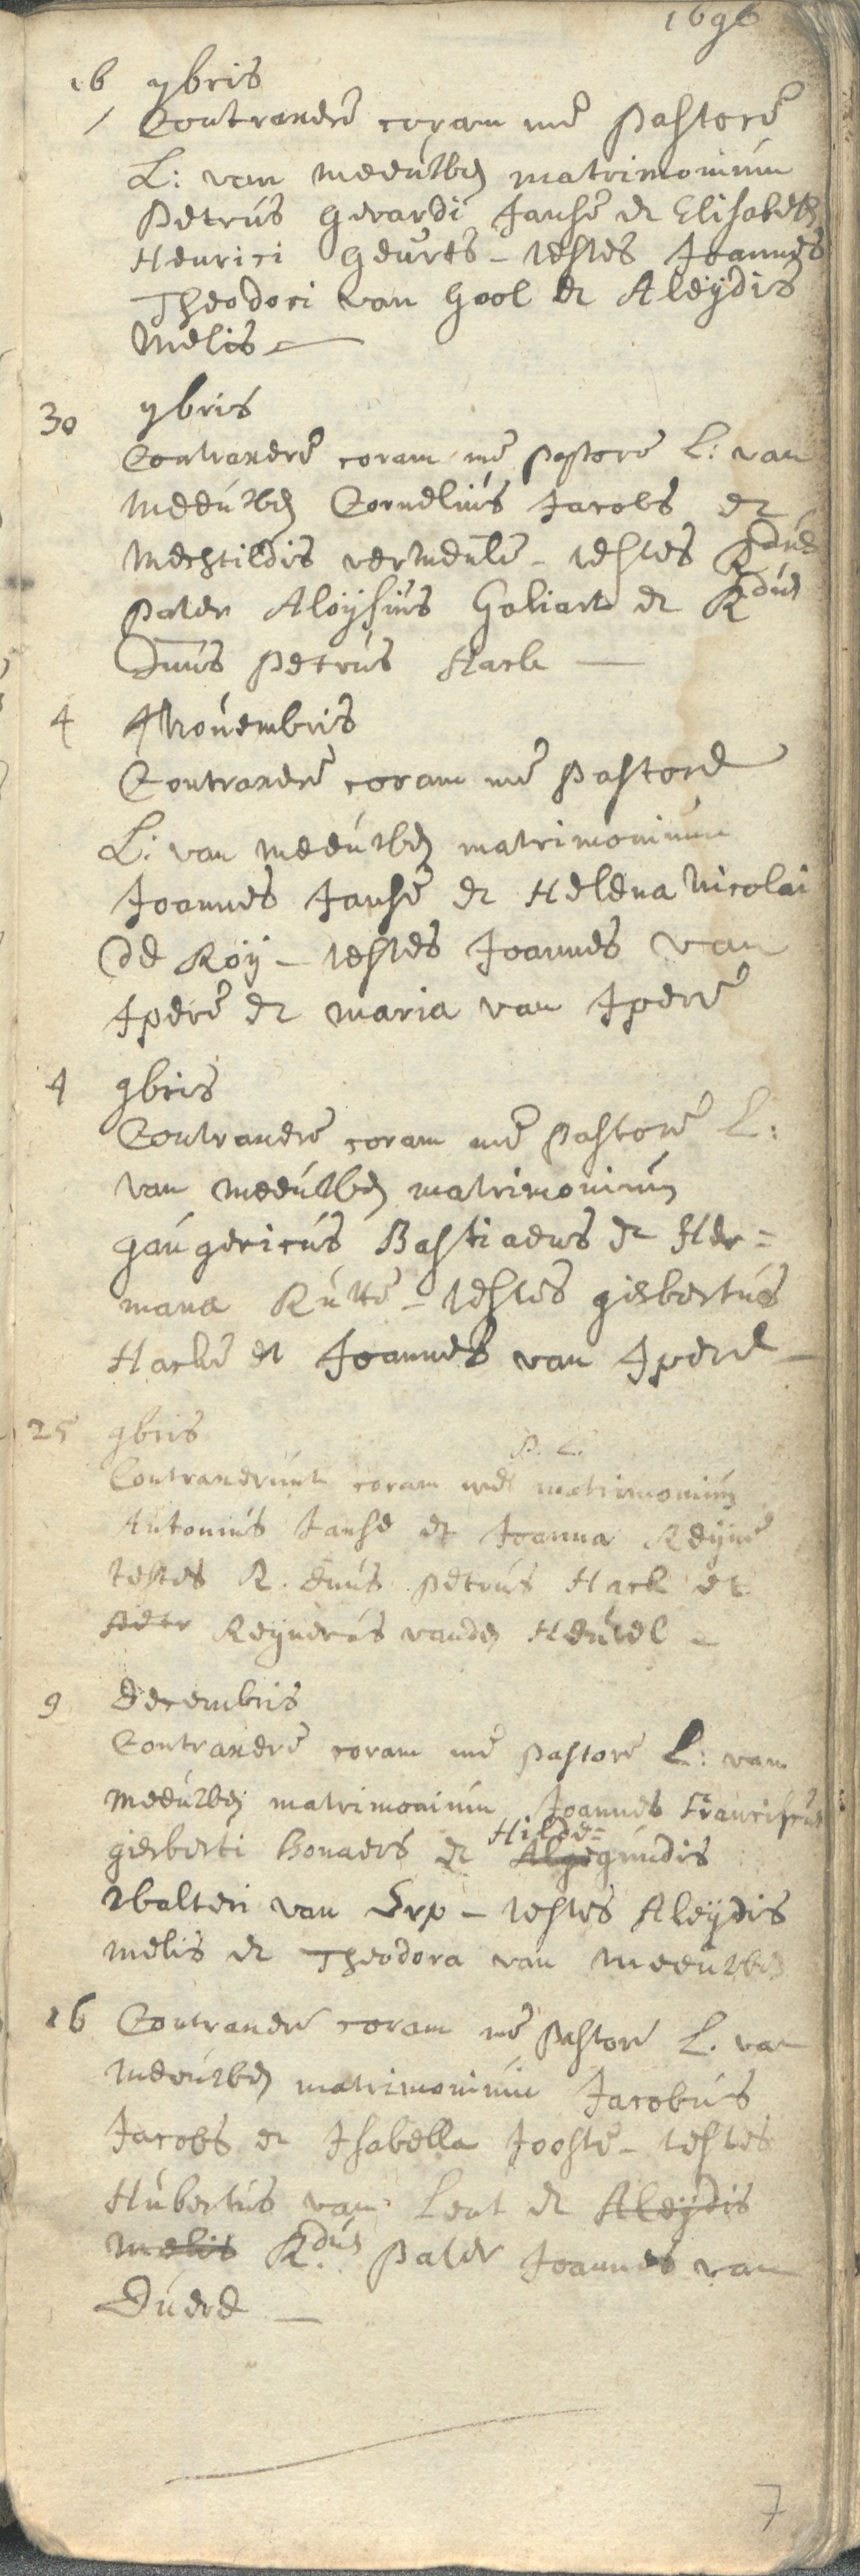 1696
16 7bris
Contraxere coram me Pastore
L: van meeúwen matrimonium
Petrús Gerardi Janse et Elisabeth
Henrici Geúrts - testes Joannes
Theodori van Gool et Aleÿdis
Melis
30 7bris
Contraxere coram me pastore L: van
meeúwen Cornelius Jacobs et
Mechtildis vermeúle - testes Rdús
pater Aloÿsius Goliart et Rdús
Dnús Petrús Hack
4 Nouembris
Contraxere coram me Pastore
L: van meeúwen matrimonium
Joannes Janse et Helena Nicolai
de Roÿ - testes Joannes van
Ipere et maria van Ipere
4 9bris
Contraxere coram me Pastore L:
van meeúwen matrimoniúm
gaúgericús Bastiaens et Her=
mana Rútte - testes gisbertús
Hacke et Joannes van Ipere
25 9bris
P. L.
Contraxerunt coram me matrimoniúm
Antoniús Janse et Joanna Reÿne
testes R. dnús Petrus Hack et
Reÿnerús vanden Heúvel
9 Decembris
Contraxere coram me pastore L: van
meeúwen matrimonium Joannes Franciscús
Hilde=
gisberti Bonaers et gúndis
Walteri van Erp - testes Aleÿdis
melis et Theodora van meeúwen
16 Contraxere coram me Pastore L. van
meeúwen matrimoniúm Jacobús
Jacobs et Isabella Jooste - testes
Húbertús van Lent et Aleÿdis
melis R.dús Pater Joannes van
Dúere
7